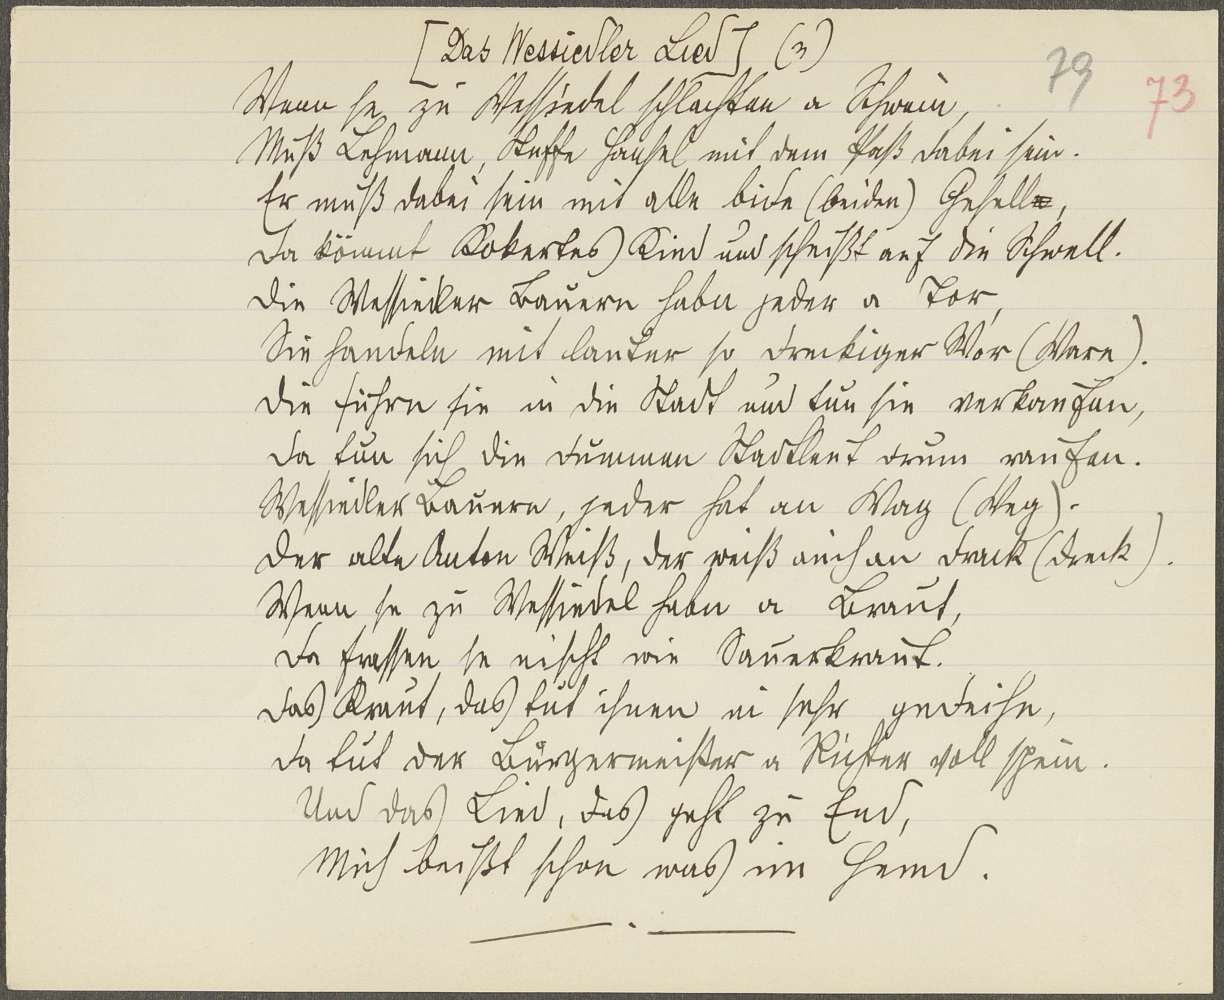 [Das Wessiedler Lied] (3)
79
73
Wenn se zu Wessiedel schlachten a Schwein,
Muß Lehmann, Steffe Hansel mit dem Paß dabei sein.
Er muß dabei sein mit alle bide (beiden) Gesell,
Da kömmt Kokertes Kind und scheißt auf die Schwell.
Die Wessiedler Bauern habn jeder a Tor,
Sie handeln mit lauter so dreckiger Wor (Ware).
Die führn sie in die Stadt und tun sie verkaufen,
Da tun sich die dummen Stadtleut drum raufen.
Wessiedler Bauern, jeder hat an Wag (Weg).
Der alte Anton Weiß, der weiß auch an Drack (Dreck).
Wenn se zu Wessiedel habn a Braut,
Da frassen se nischt wie Sauerkraut.
Das Kraut, das tut ihnen ni sehr gedeihn,
Da tut der Bürgermeister a Richter voll spein.
Und das Lied, das geht zu End,
Mich beißt schon was im Hemd.